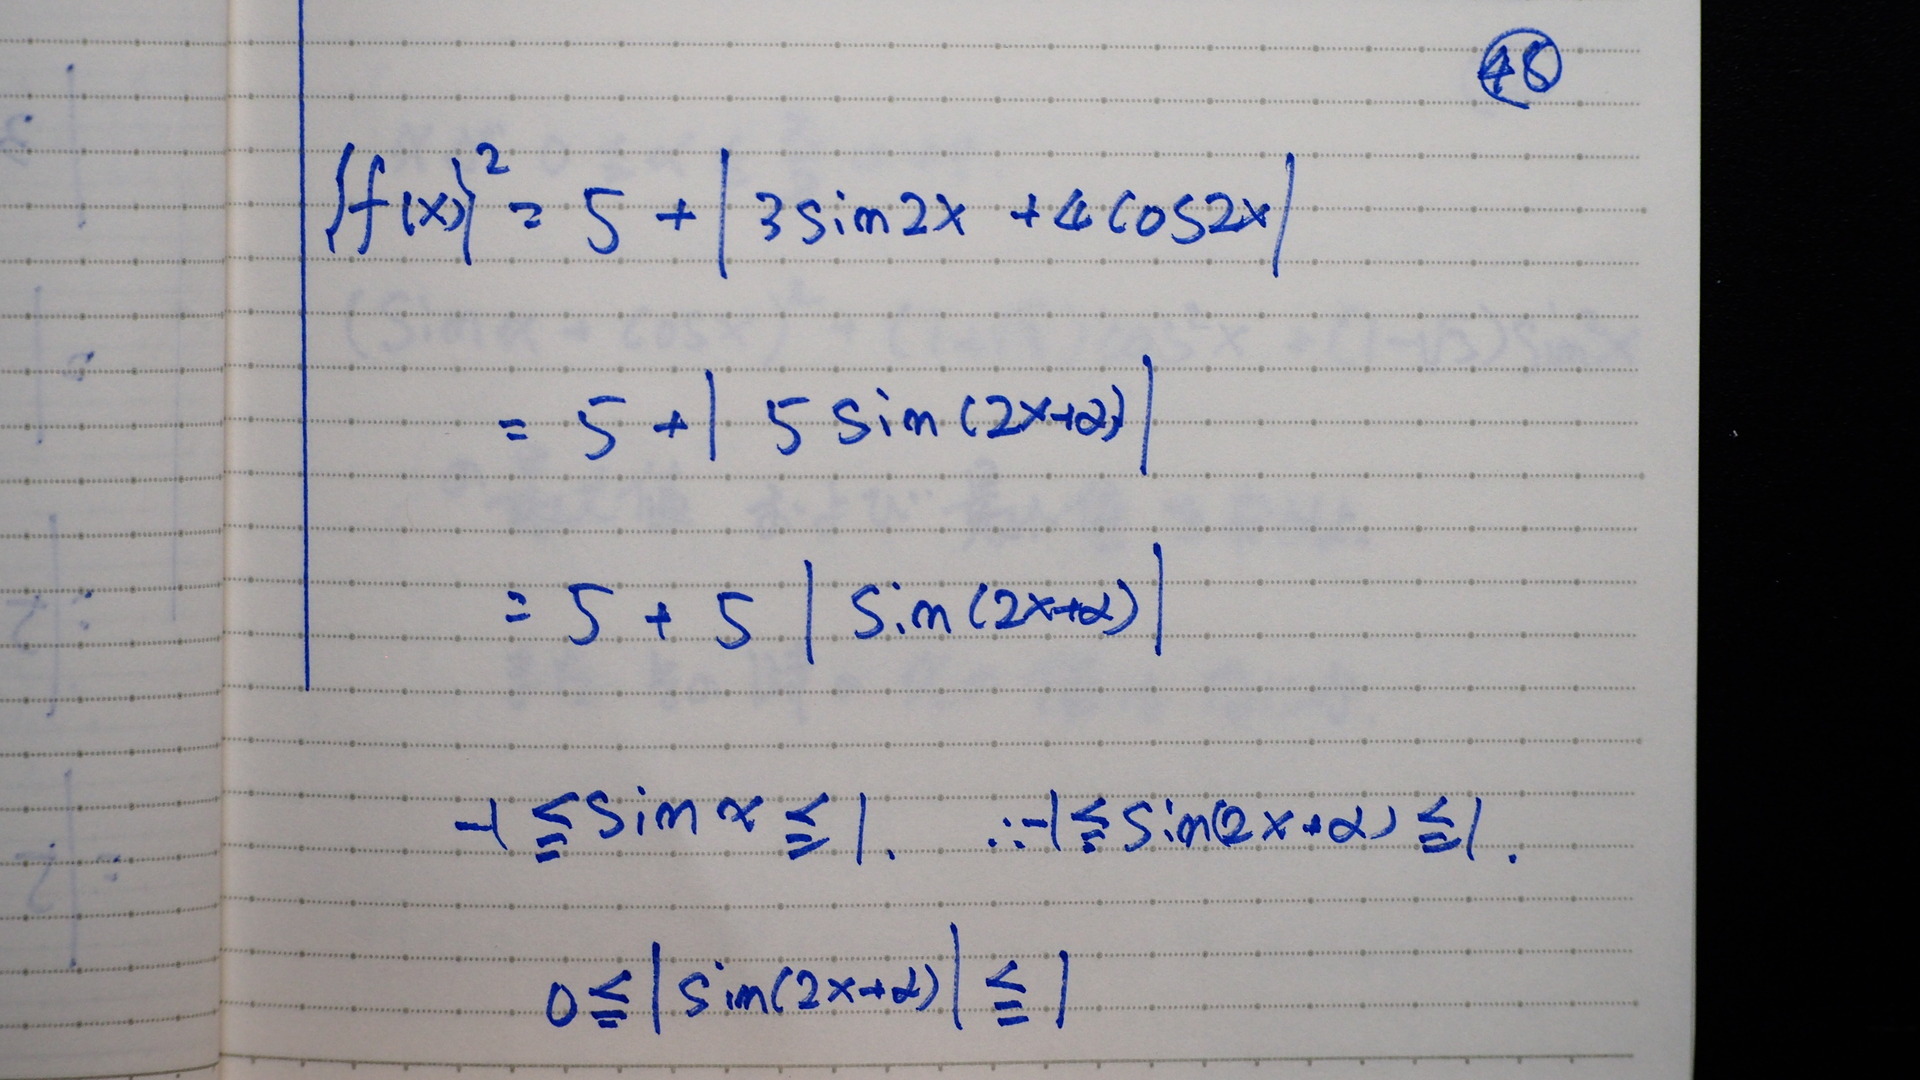 {f(x)}² = 5 + | 3 sin2x + 4 cos2x |
= 5 + | 5 sin(2x+α) |
= 5 + 5 | sin(2x+α) |
-1 ≦ sin x ≦ 1. ∴ -1 ≦ sin(2x+α) ≦ 1.
0 ≦ | sin(2x+α) | ≦ 1